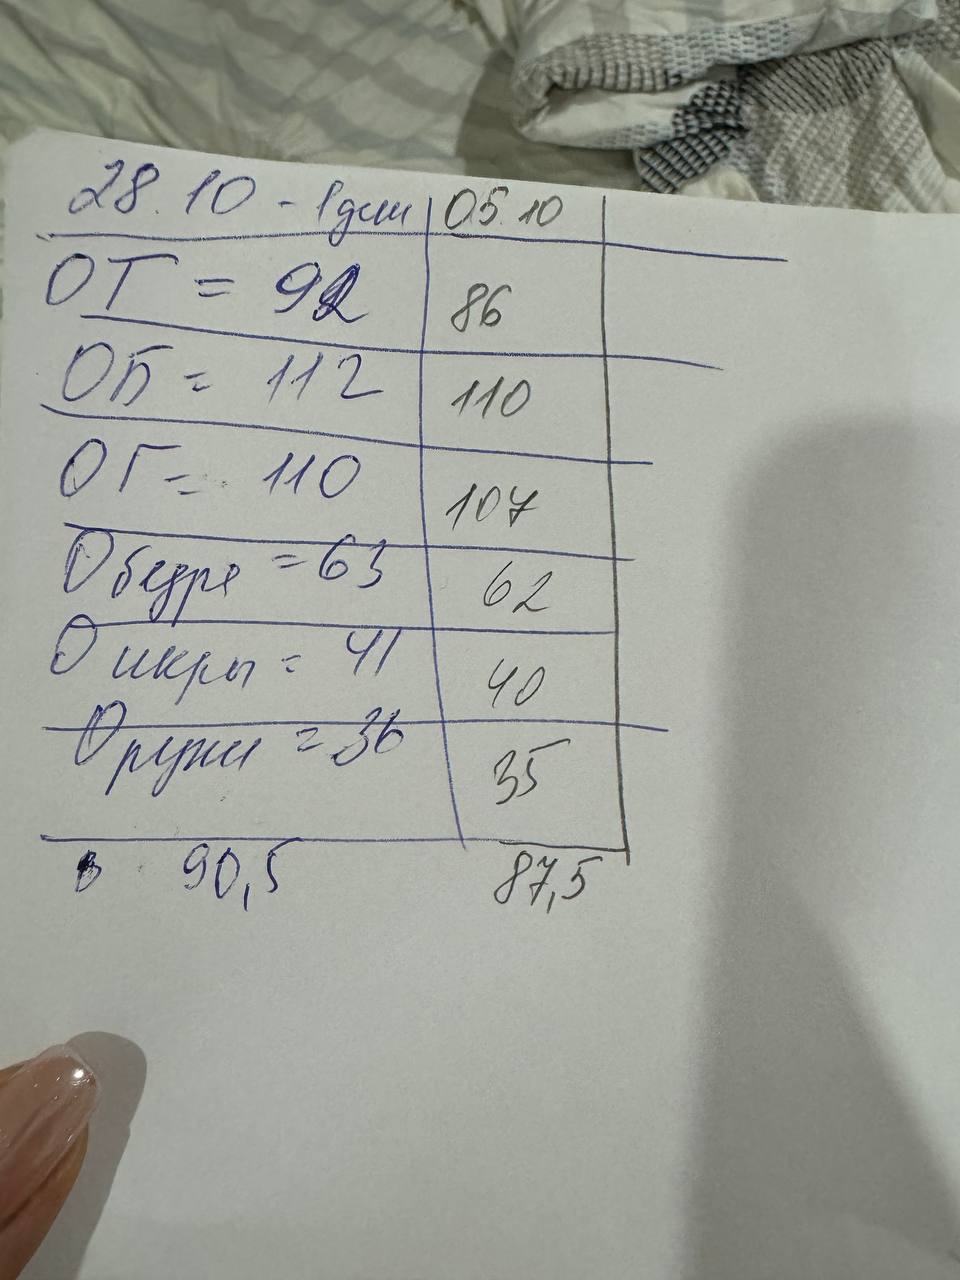 28.10 - 1 день 05.10
ОТ = 92 86
ОБ = 112 110
ОГ = 110 107
О бедра = 63 62
О икры = 41 40
О руки = 36 35
В 90,5 87,5